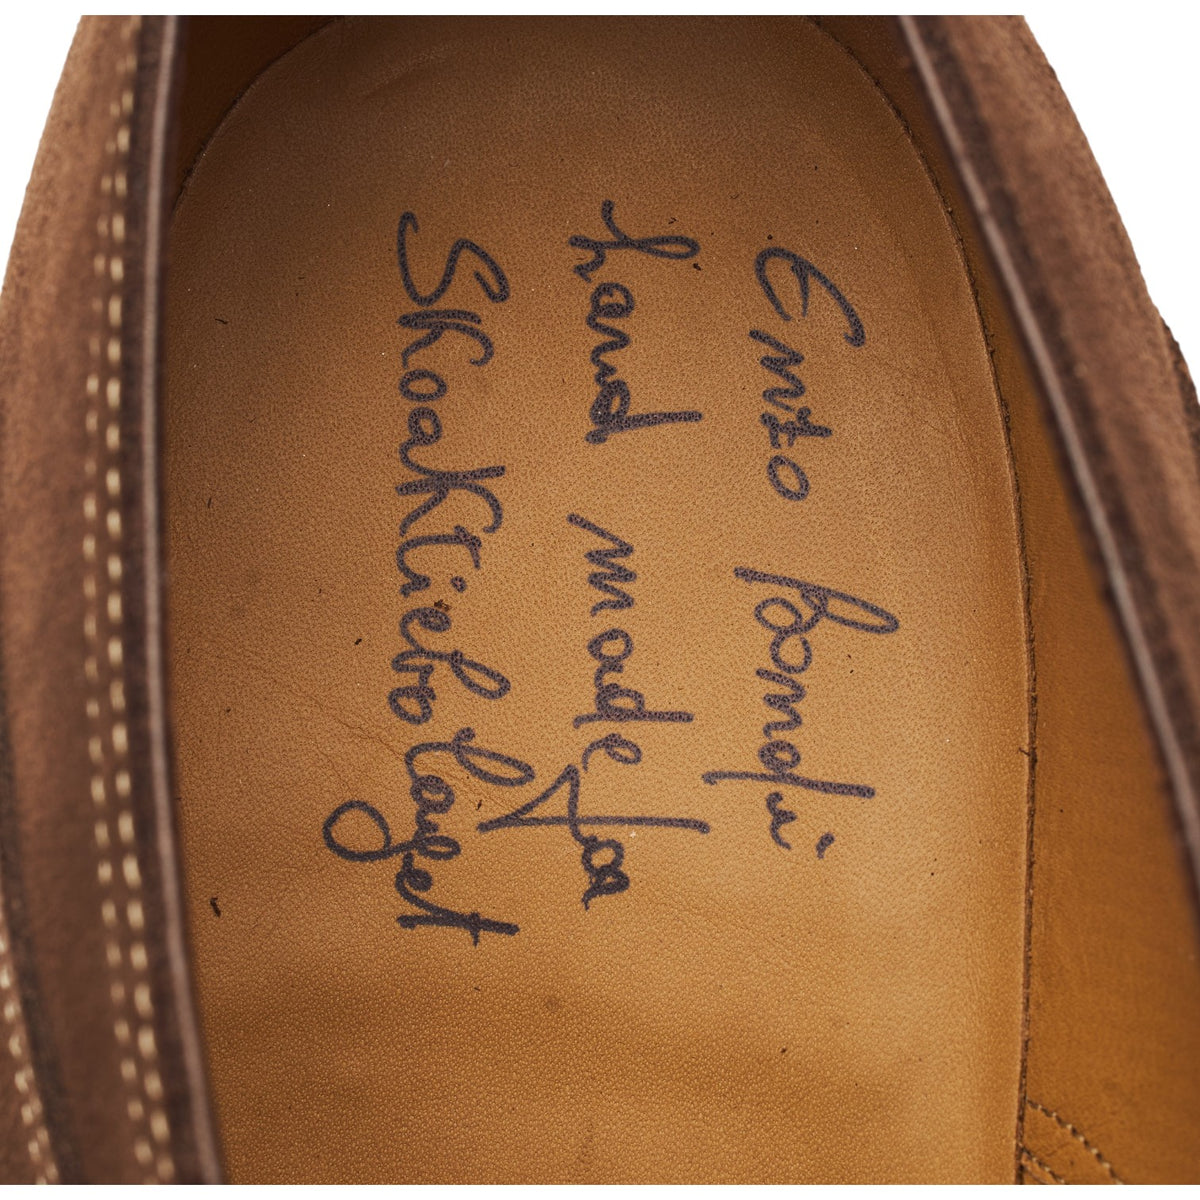 Enzo Bonafè
hand made for
Skoaktiebolaget